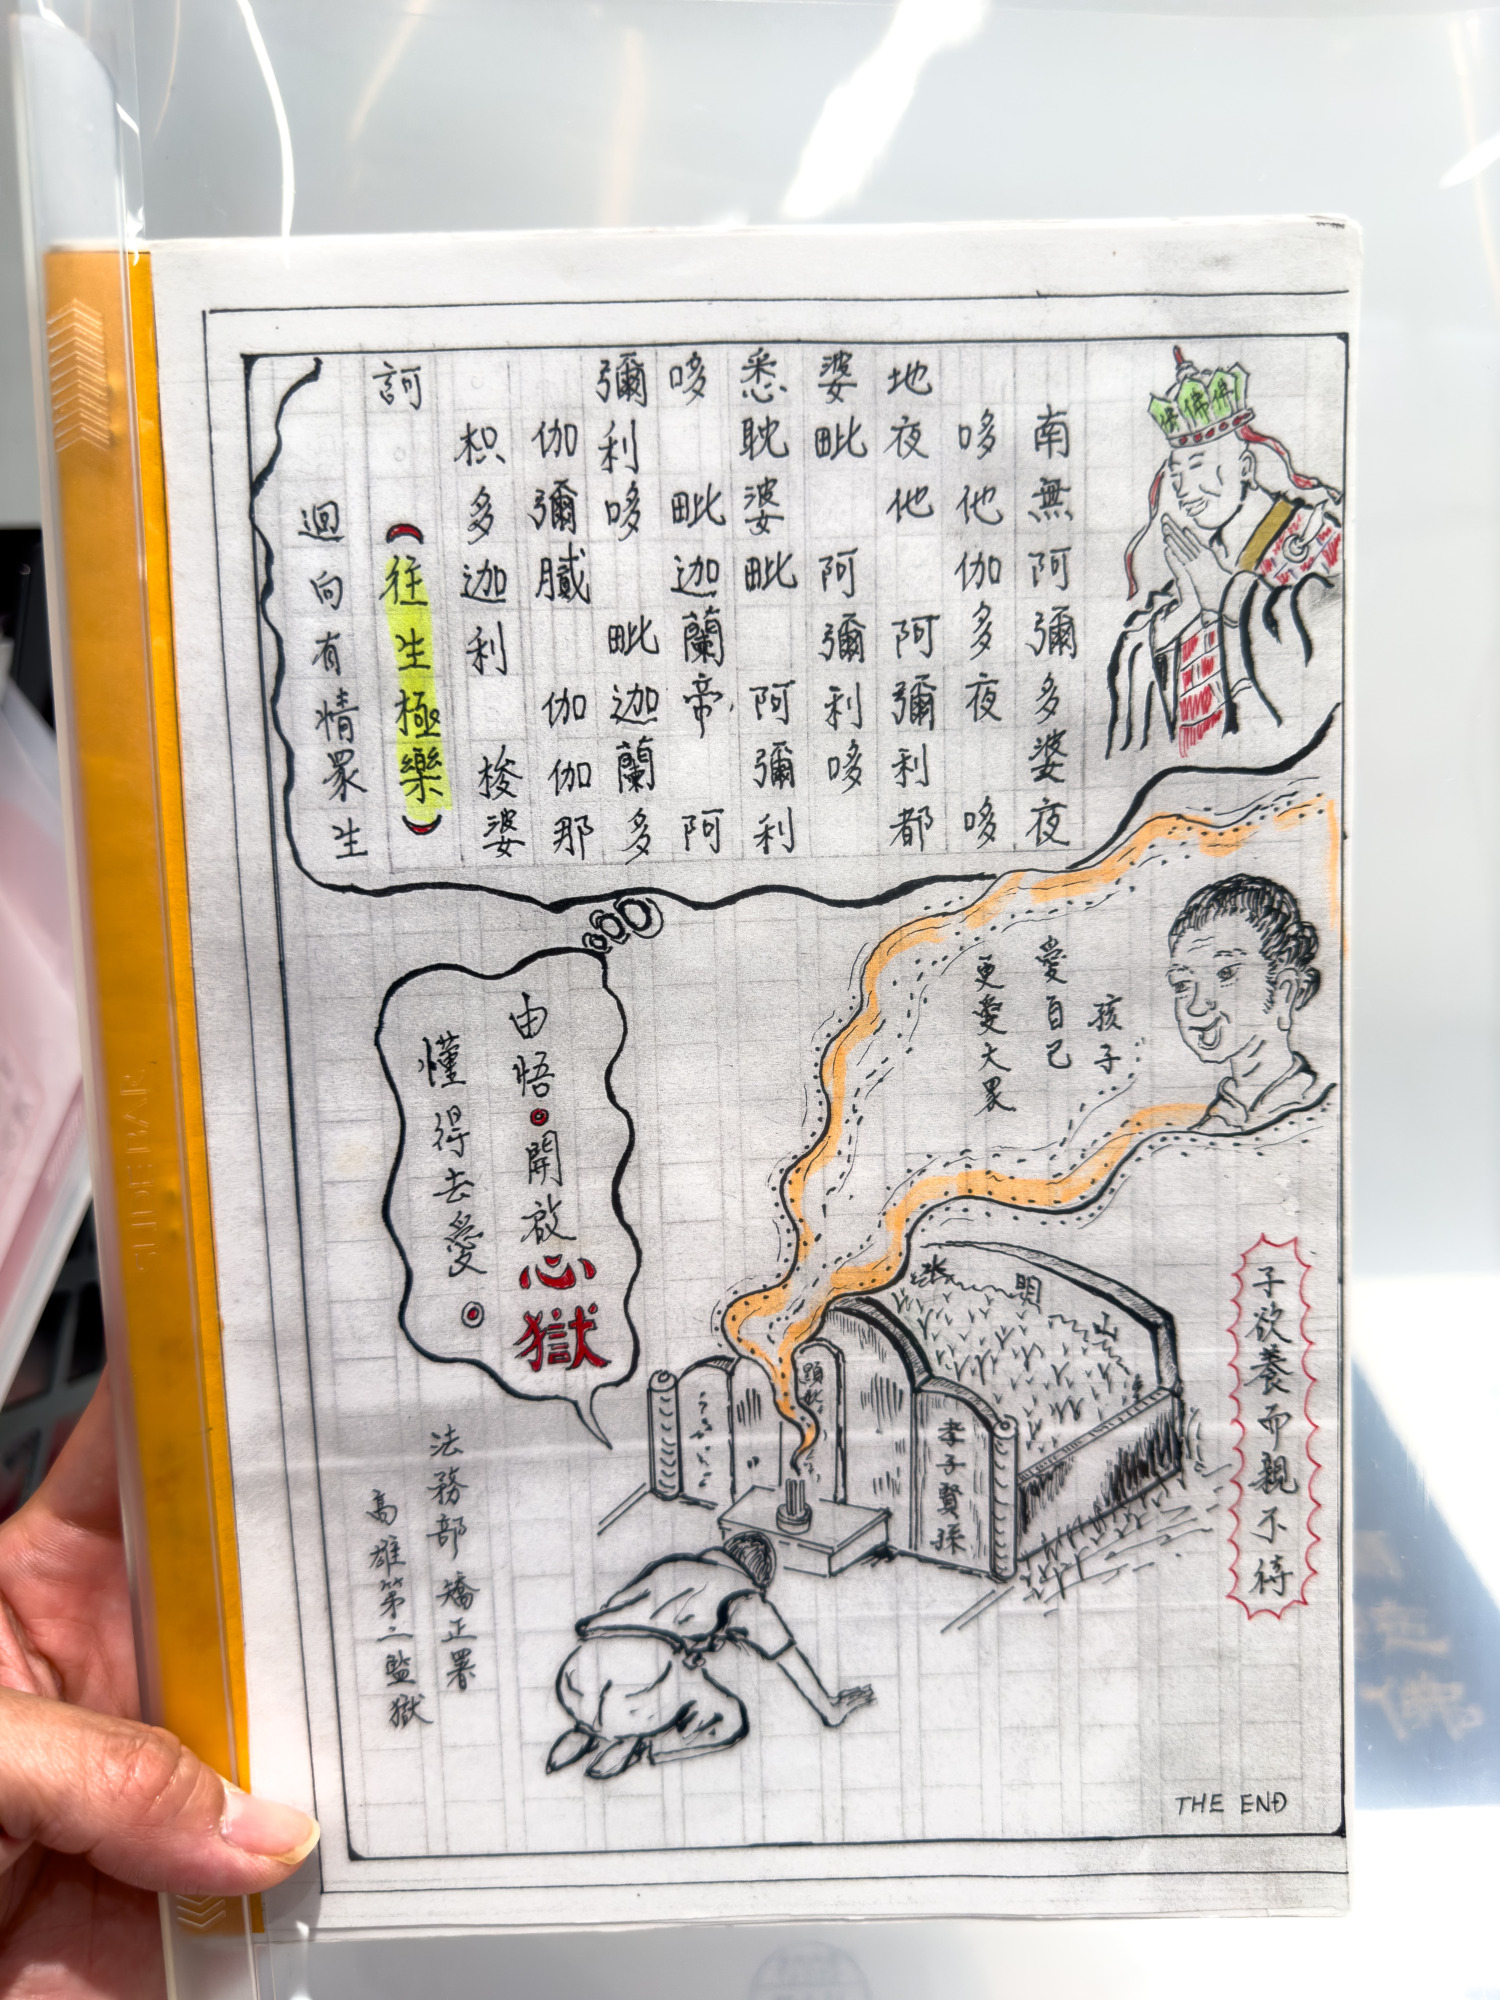 南無阿彌多婆夜
哆他伽多夜 哆
地夜他 阿彌利都
婆毗 阿彌利哆
悉耽婆毗 阿彌利
哆 毗迦蘭帝 阿
彌利哆 毗迦蘭多
伽彌膩 伽伽那
枳多迦利 梭婆
訶
(往生極樂)
迴向有情眾生
佛佛佛
孩子
愛自己
更愛大眾
由悟。開啟心獄
懂得去愛。
子欲養而親不待
明
山
顯
孝子賢孫
法務部矯正署
高雄第二監獄
THE END